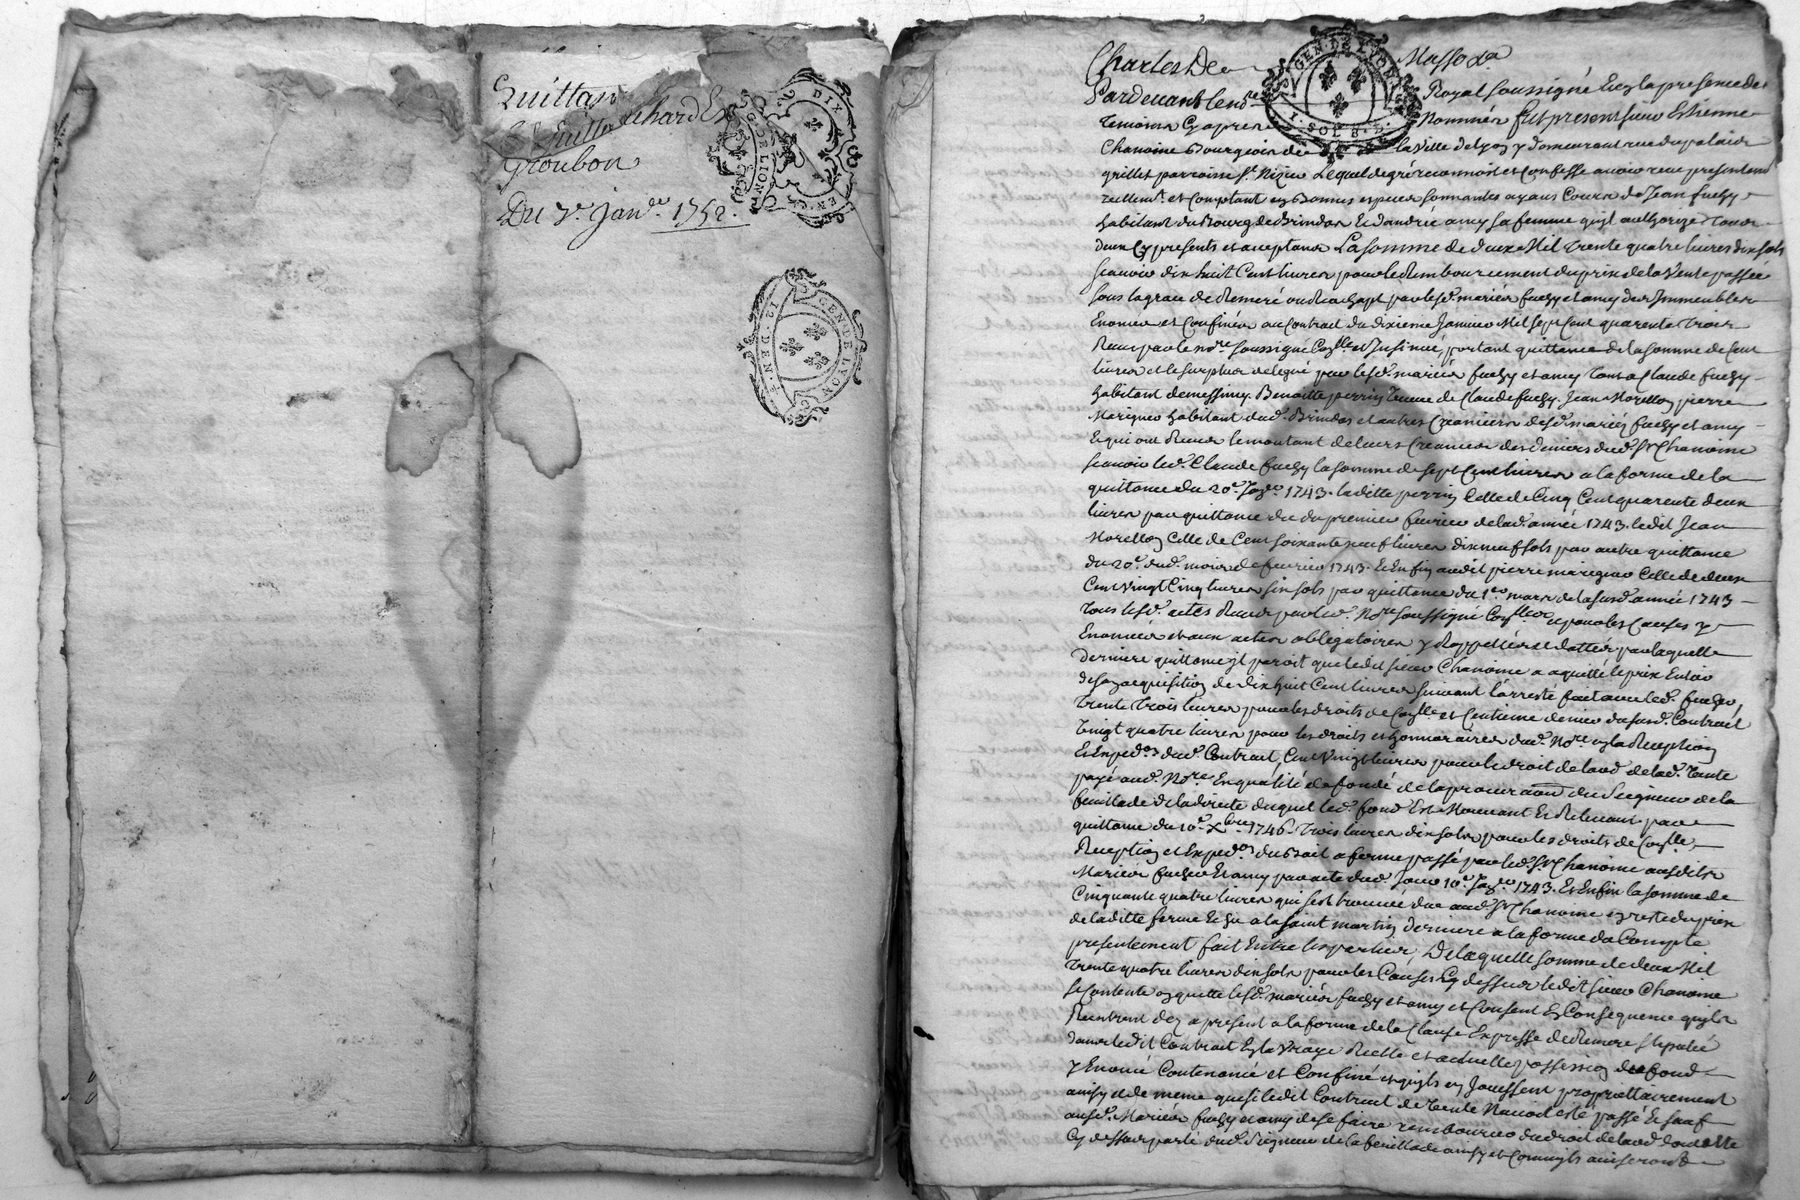 Quittan
Groubon
Du 7e. Janv. 1752.
GEN. DE LYON
DIX
GEN. DE LYON
12. DEN.
GEN. DE LYON
I. SOL 8. D.
Charles De
Masso
Pardevant le nore Royal soussigné En la presence des
temoins Cy apres Nommés fut present sieur Estienne
Chanoine Bourgeois de la ville de Lyon y demeurant rue du palais
grillet parroisse St. Nizier Lequel de gré reconnoit et Confesse avoir reçu presentemt
reellemt. et comptant en bonnes especes sonnantes ayans Cours de Jean fuchy
habitant du Bourg de Brindas Et d'andrée amy sa femme qu'il authorize tous
deux Cy presents et acceptans La somme de deux Mil trente quatre livres dix sols
scavoir dix huit Cent livres pour le Rembourcement du prix de la Vente passée
sous la grace de Remeré ou Rachapt par lesd. mariés fuchy et amy des Immeubles
Enoncés et Confinés au Contrat du dixieme Janvier Mil sept Cent quarente trois
Reçu par le nore. soussigné Conllé et Insinué, portant quittance de la somme de Cent
livres et le surplus delegué par lesd. mariés fuchy et amy tant a Claude fuchy
habitant de messimy. Benoitte perrin veuve de Claude fuchy. Jean Morellon pierre
Marignier habitant dud. Brindas et autres Creanciers desd. mariés fuchy et amy
Et qui ont Reçus le montant de leurs Creances des deniers dud. Sr Chanoine
scavoir led. Claude fuchy la somme de sept Cent livres a la forme de la
quittance du 20e. Janer 1743. laditte perrin Celle de Cinq Cent quarente deux
livres par quittance du du premier fevrier de lad. année 1743. ledit Jean
Morellon Celle de Cent soixante neuf livres dix neuf sols par autre quittance
du 20e. dud. mois de fevrier 1743. Et Enfin audit pierre marignier Celle de deux
Cent Vingt Cinq livres six sols par quittance du 1er mars de la susd. année 1743
tous lesd. actes Reçus par led. Nore soussigné Conllés et pour les Causes y
Enoncées et aux actes obligatoires y Rappellés et dattés par laquelle
derniere quittance il paroit que ledit sieur Chanoine a aquitté le prix Entier
de son acquisition de dix huit Cent livres suivant l'arresté fait avec led. fuchy,
trente trois livres pour les droits de Conlle et Centieme denier du susd. Contract
Vingt quatre livres pour les droits et honnoraires dud. Nore en la Reception
Et Expedon dud. Contract, Cent Vingt livres pour le droit de laod de lad. Vente
payé aud. Nore En qualité de fondé de la procuraon du Seigneur de la
feuillade de la directe duquel led. fond Est Mouvant Et Relevant par
quittance du 10e. Xbre 1746. trois livres dix sols pour les droits de Conlle
Reception et Expedon du Bail a ferme passé par led. Sr Chanoine ausdits
Mariés fuchy Et amy par acte dud. Jour 10e. Janer 1743. Et Enfin la somme de
Cinquante quatre livres qui s'est trouvée due aud. Sr Chanoine en reste du prix
de laditte ferme Echu a la saint martin derniere a la forme du Compte
presentement fait Entre les parties; De laquelle somme de deux Mil
trente quatre livres dix sols pour les Causes Cy dessus ledit sieur Chanoine
se Contente en quitte lesd. mariés fuchy et amy et Consent En Consequence qu'ils
Rentrent des a present a la forme de la Clause Expresse de Remeré stipulée
dans ledit Contract En la Vraye Reelle et actuelle possession du fond
y Enoncé Contenancé et Confiné et qu'ils en Jouissent proprietairement
ainsy et de meme que si ledit Contract de Vente N'avoit esté passé Et sauf
ausd. Mariés fuchy et amy de se faire rembourcer du droit de laod dont Est
Cy dessus parlé dud. Seigneur de la feuillade ainsy et Comm'ils aviseront